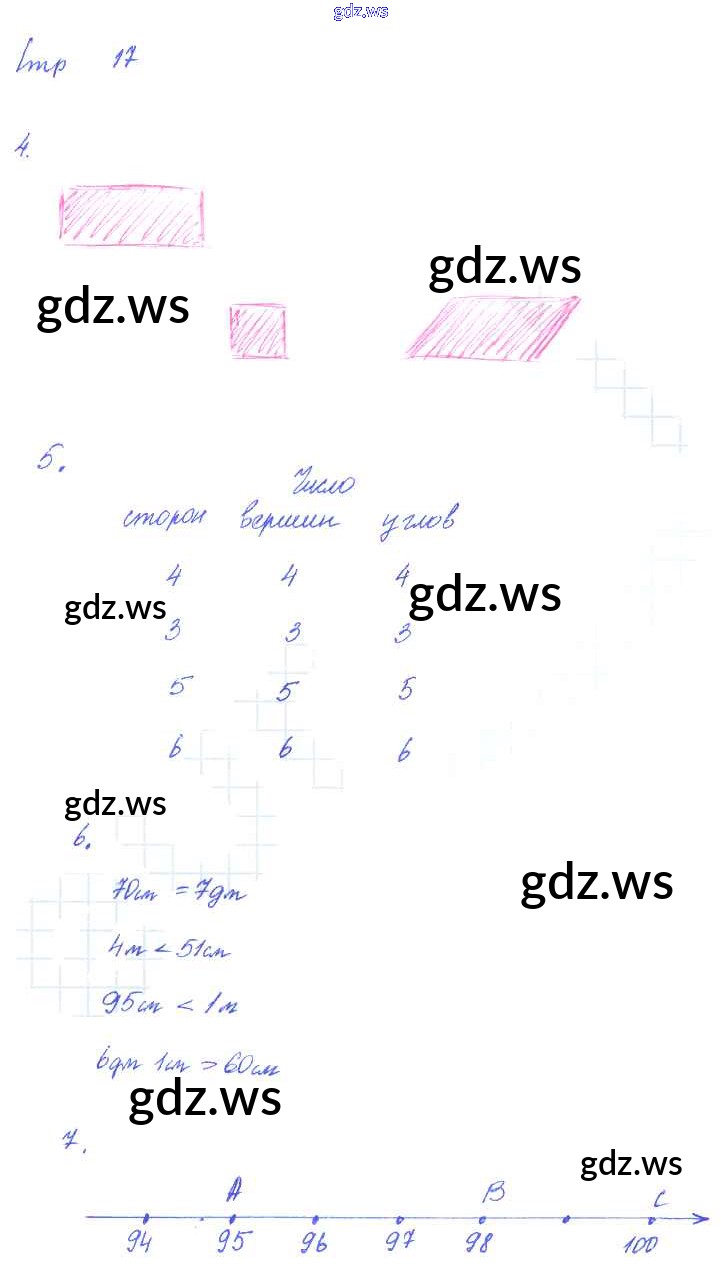 gdz.ws
Стр 17
4.
gdz.ws
gdz.ws
5.
Число
сторон вершин углов
4 4 4
gdz.ws gdz.ws
3 3 3
5 5 5
6 6 6
gdz.ws
6.
gdz.ws
70см = 7дм
4м < 51см
95см < 1м
6дм 1см > 60см
gdz.ws
7.
gdz.ws
А В С
94 95 96 97 98 100